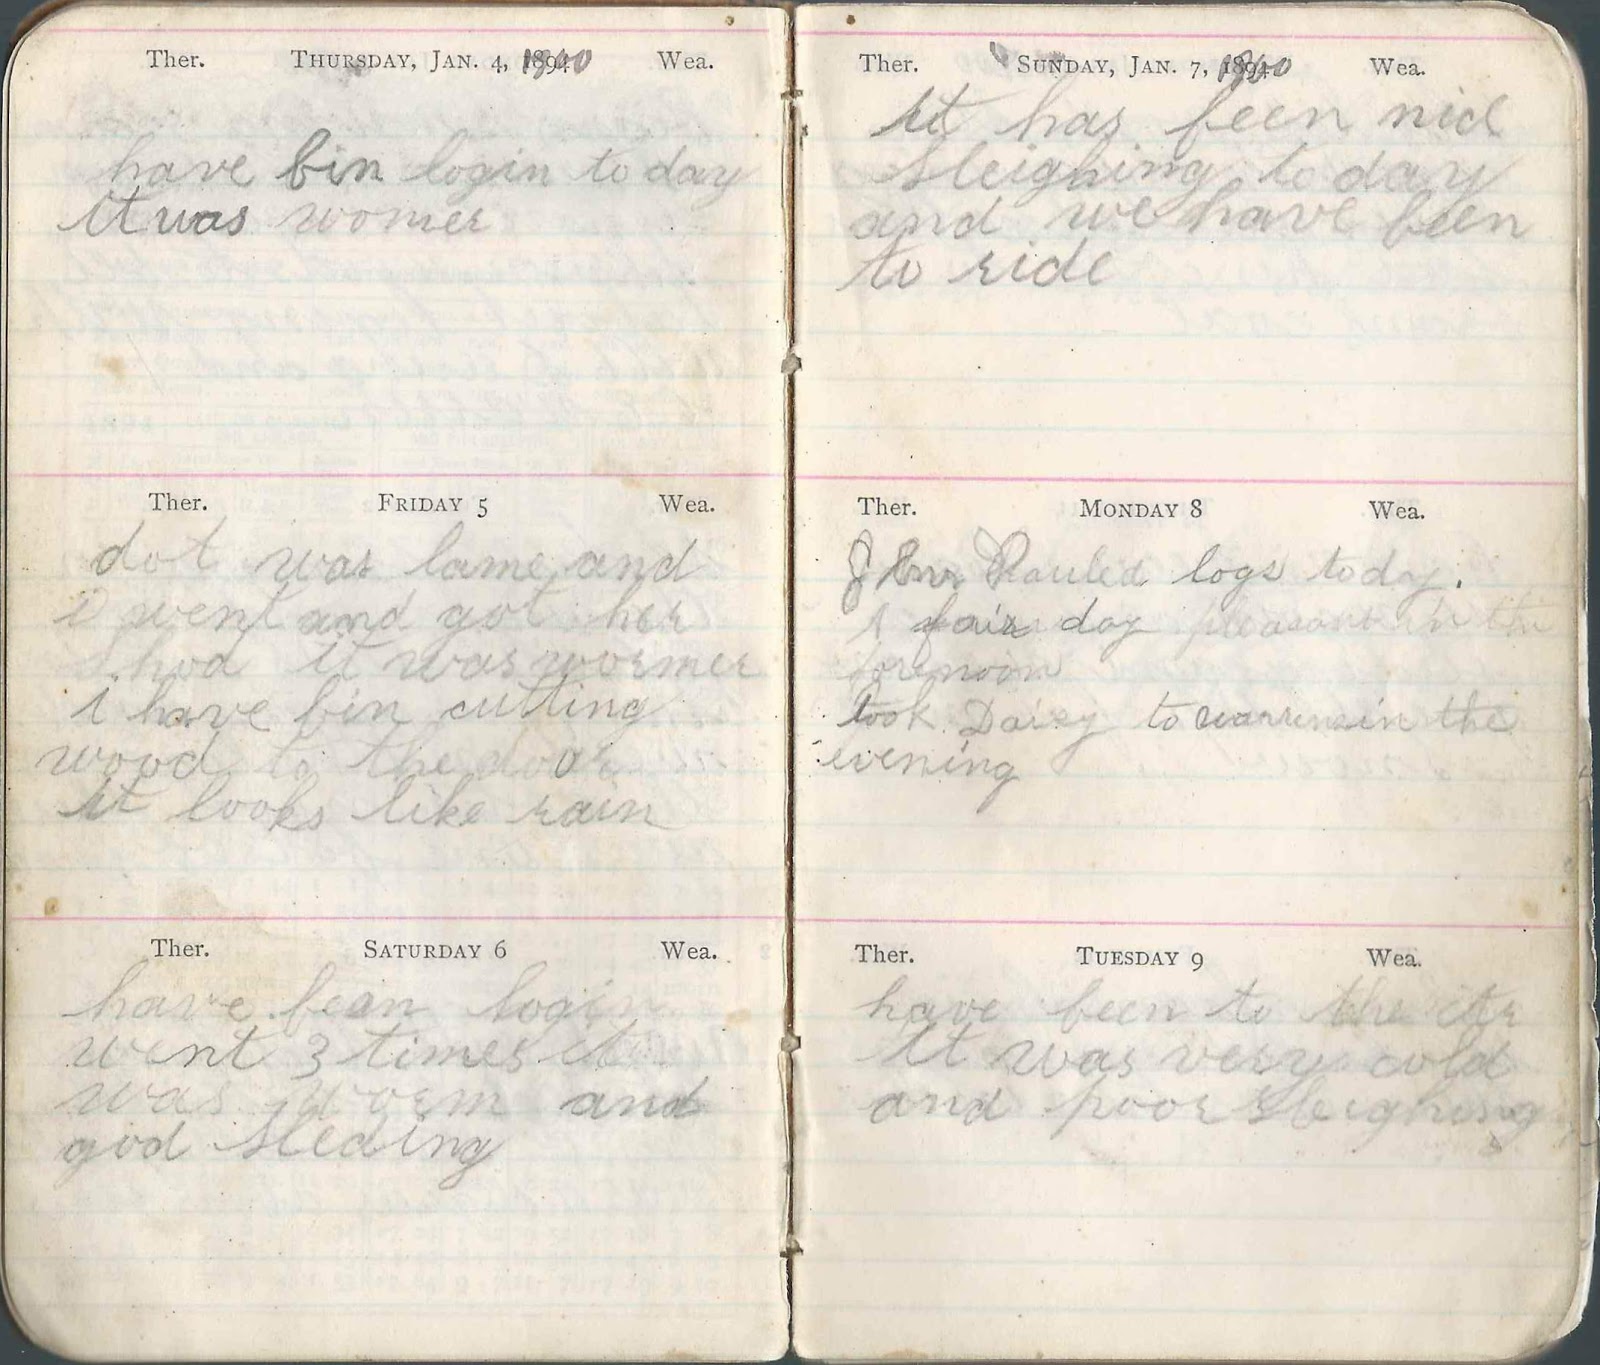 Ther. THURSDAY, JAN. 4, 1900 Wea.
have bin login to day
it was wormer
Ther. FRIDAY 5 Wea.
dot was lame and
i went and got her
shod it was wormer
i have bin cutting
wood to the door
it looks like rain
Ther. SATURDAY 6 Wea.
have bean login
went 3 times it
was worm and
god sleding
Ther. SUNDAY, JAN. 7, 1900 Wea.
it has been nicl
sleighing to day
and we have been
to ride
Ther. MONDAY 8 Wea.
Hauled logs today.
A fair day pleasant in the
forenoon
took Daisy to warrens in the
evening
Ther. TUESDAY 9 Wea.
have been to the
it was very cold
and poor sleighing